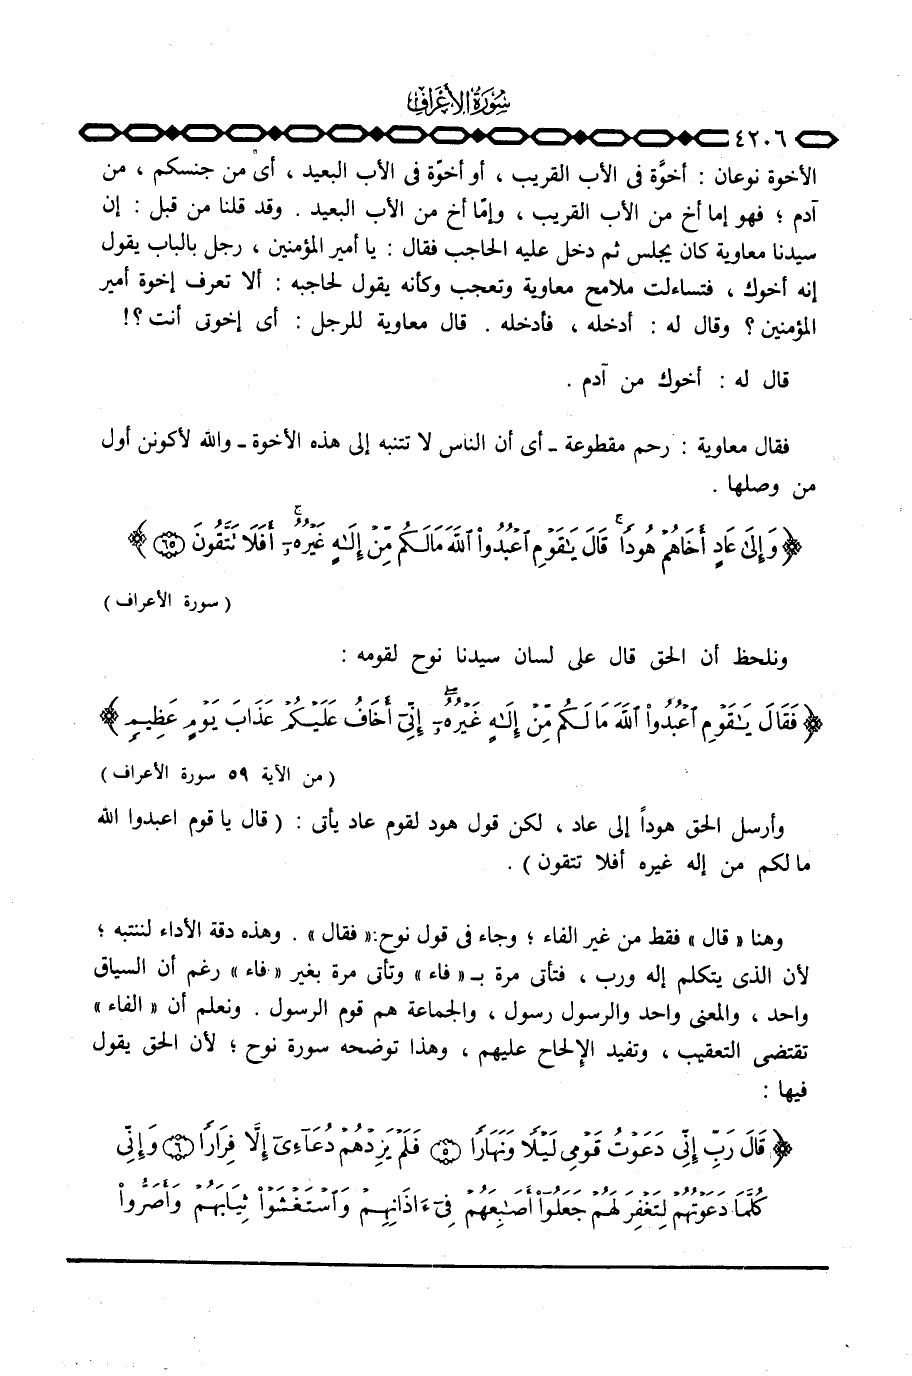 سُورَةُ الأَعْرَافِ
٤٢٠٦
الأخوة نوعان : أخوَّة فى الأب القريب ، أو أخوّة فى الأب البعيد ، أى من جنسكم ، من
آدم ؛ فهو إما أخ من الأب القريب ، وإمّا أخ من الأب البعيد . وقد قلنا من قبل : إن
سيدنا معاوية كان يجلس ثم دخل عليه الحاجب فقال : يا أمير المؤمنين ، رجل بالباب يقول
إنه أخوك ، فتساءلت ملامح معاوية وتعجب وكأنه يقول لحاجبه : ألا تعرف إخوة أمير
المؤمنين ؟ وقال له : أدخله ، فأدخله . قال معاوية للرجل : أى إخوتى أنت ؟!
قال له : أخوك من آدم .
فقال معاوية : رحم مقطوعة ـ أى أن الناس لا تتنبه إلى هذه الأخوة ـ والله لأكونن أول
من وصلها .
﴿ وَإِلَىٰ عَادٍ أَخَاهُمْ هُودًا ۗ قَالَ يَـٰقَوْمِ ٱعْبُدُوا۟ ٱللَّهَ مَالَكُم مِّنْ إِلَـٰهٍ غَيْرُهُۥٓ ۚ أَفَلَا تَتَّقُونَ ٦٥ ﴾
( سورة الأعراف )
ونلحظ أن الحق قال على لسان سيدنا نوح لقومه :
﴿ فَقَالَ يَـٰقَوْمِ ٱعْبُدُوا۟ ٱللَّهَ مَا لَكُم مِّنْ إِلَـٰهٍ غَيْرُهُۥٓ إِنِّىٓ أَخَافُ عَلَيْكُمْ عَذَابَ يَوْمٍ عَظِيمٍ ﴾
( من الآية ٥٩ سورة الأعراف )
وأرسل الحق هوداً إلى عاد ، لكن قول هود لقوم عاد يأتى : ( قال يا قوم اعبدوا الله
ما لكم من إله غيره أفلا تتقون ) .
وهنا « قال » فقط من غير الفاء ؛ وجاء فى قول نوح:« فقال » . وهذه دقة الأداء لننتبه ؛
لأن الذى يتكلم إله ورب ، فتأتى مرة بـ « فاء » وتأتى مرة بغير « فاء » رغم أن السياق
واحد ، والمعنى واحد والرسول رسول ، والجماعة هم قوم الرسول . ونعلم أن « الفاء »
تقتضى التعقيب ، وتفيد الإلحاح عليهم ، وهذا توضحه سورة نوح ؛ لأن الحق يقول
فيها :
﴿ قَالَ رَبِّ إِنِّى دَعَوْتُ قَوْمِى لَيْلًا وَنَهَارًا ٥ فَلَمْ يَزِدْهُمْ دُعَآءِىٓ إِلَّا فِرَارًا ٦ وَإِنِّى
كُلَّمَا دَعَوْتُهُمْ لِتَغْفِرَ لَهُمْ جَعَلُوٓا۟ أَصَـٰبِعَهُمْ فِىٓ ءَاذَانِهِمْ وَٱسْتَغْشَوْا۟ ثِيَابَهُمْ وَأَصَرُّوا۟